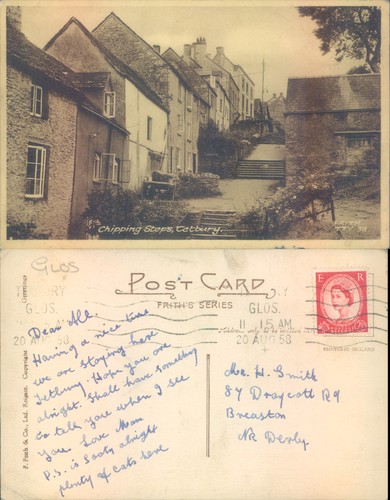 Chipping Steps, Tetbury.
GLOS
POST CARD
FRITH'S SERIES
E R
GLOS.
11 15 AM
20 AUG 58
GLOS.
20 AUG 58
F. Frith & Co., Ltd. Reigate. Copyright
Dear All.
Having a nice time
we are staying here
Tetbury. Hope you are
alright. Shall have something
to tell you when I see
you. Love Mam
P.S. is Sooty alright
plenty of cats here
Mr. H. Smith
87 Draycott Rd
Breaston
Nr Derby